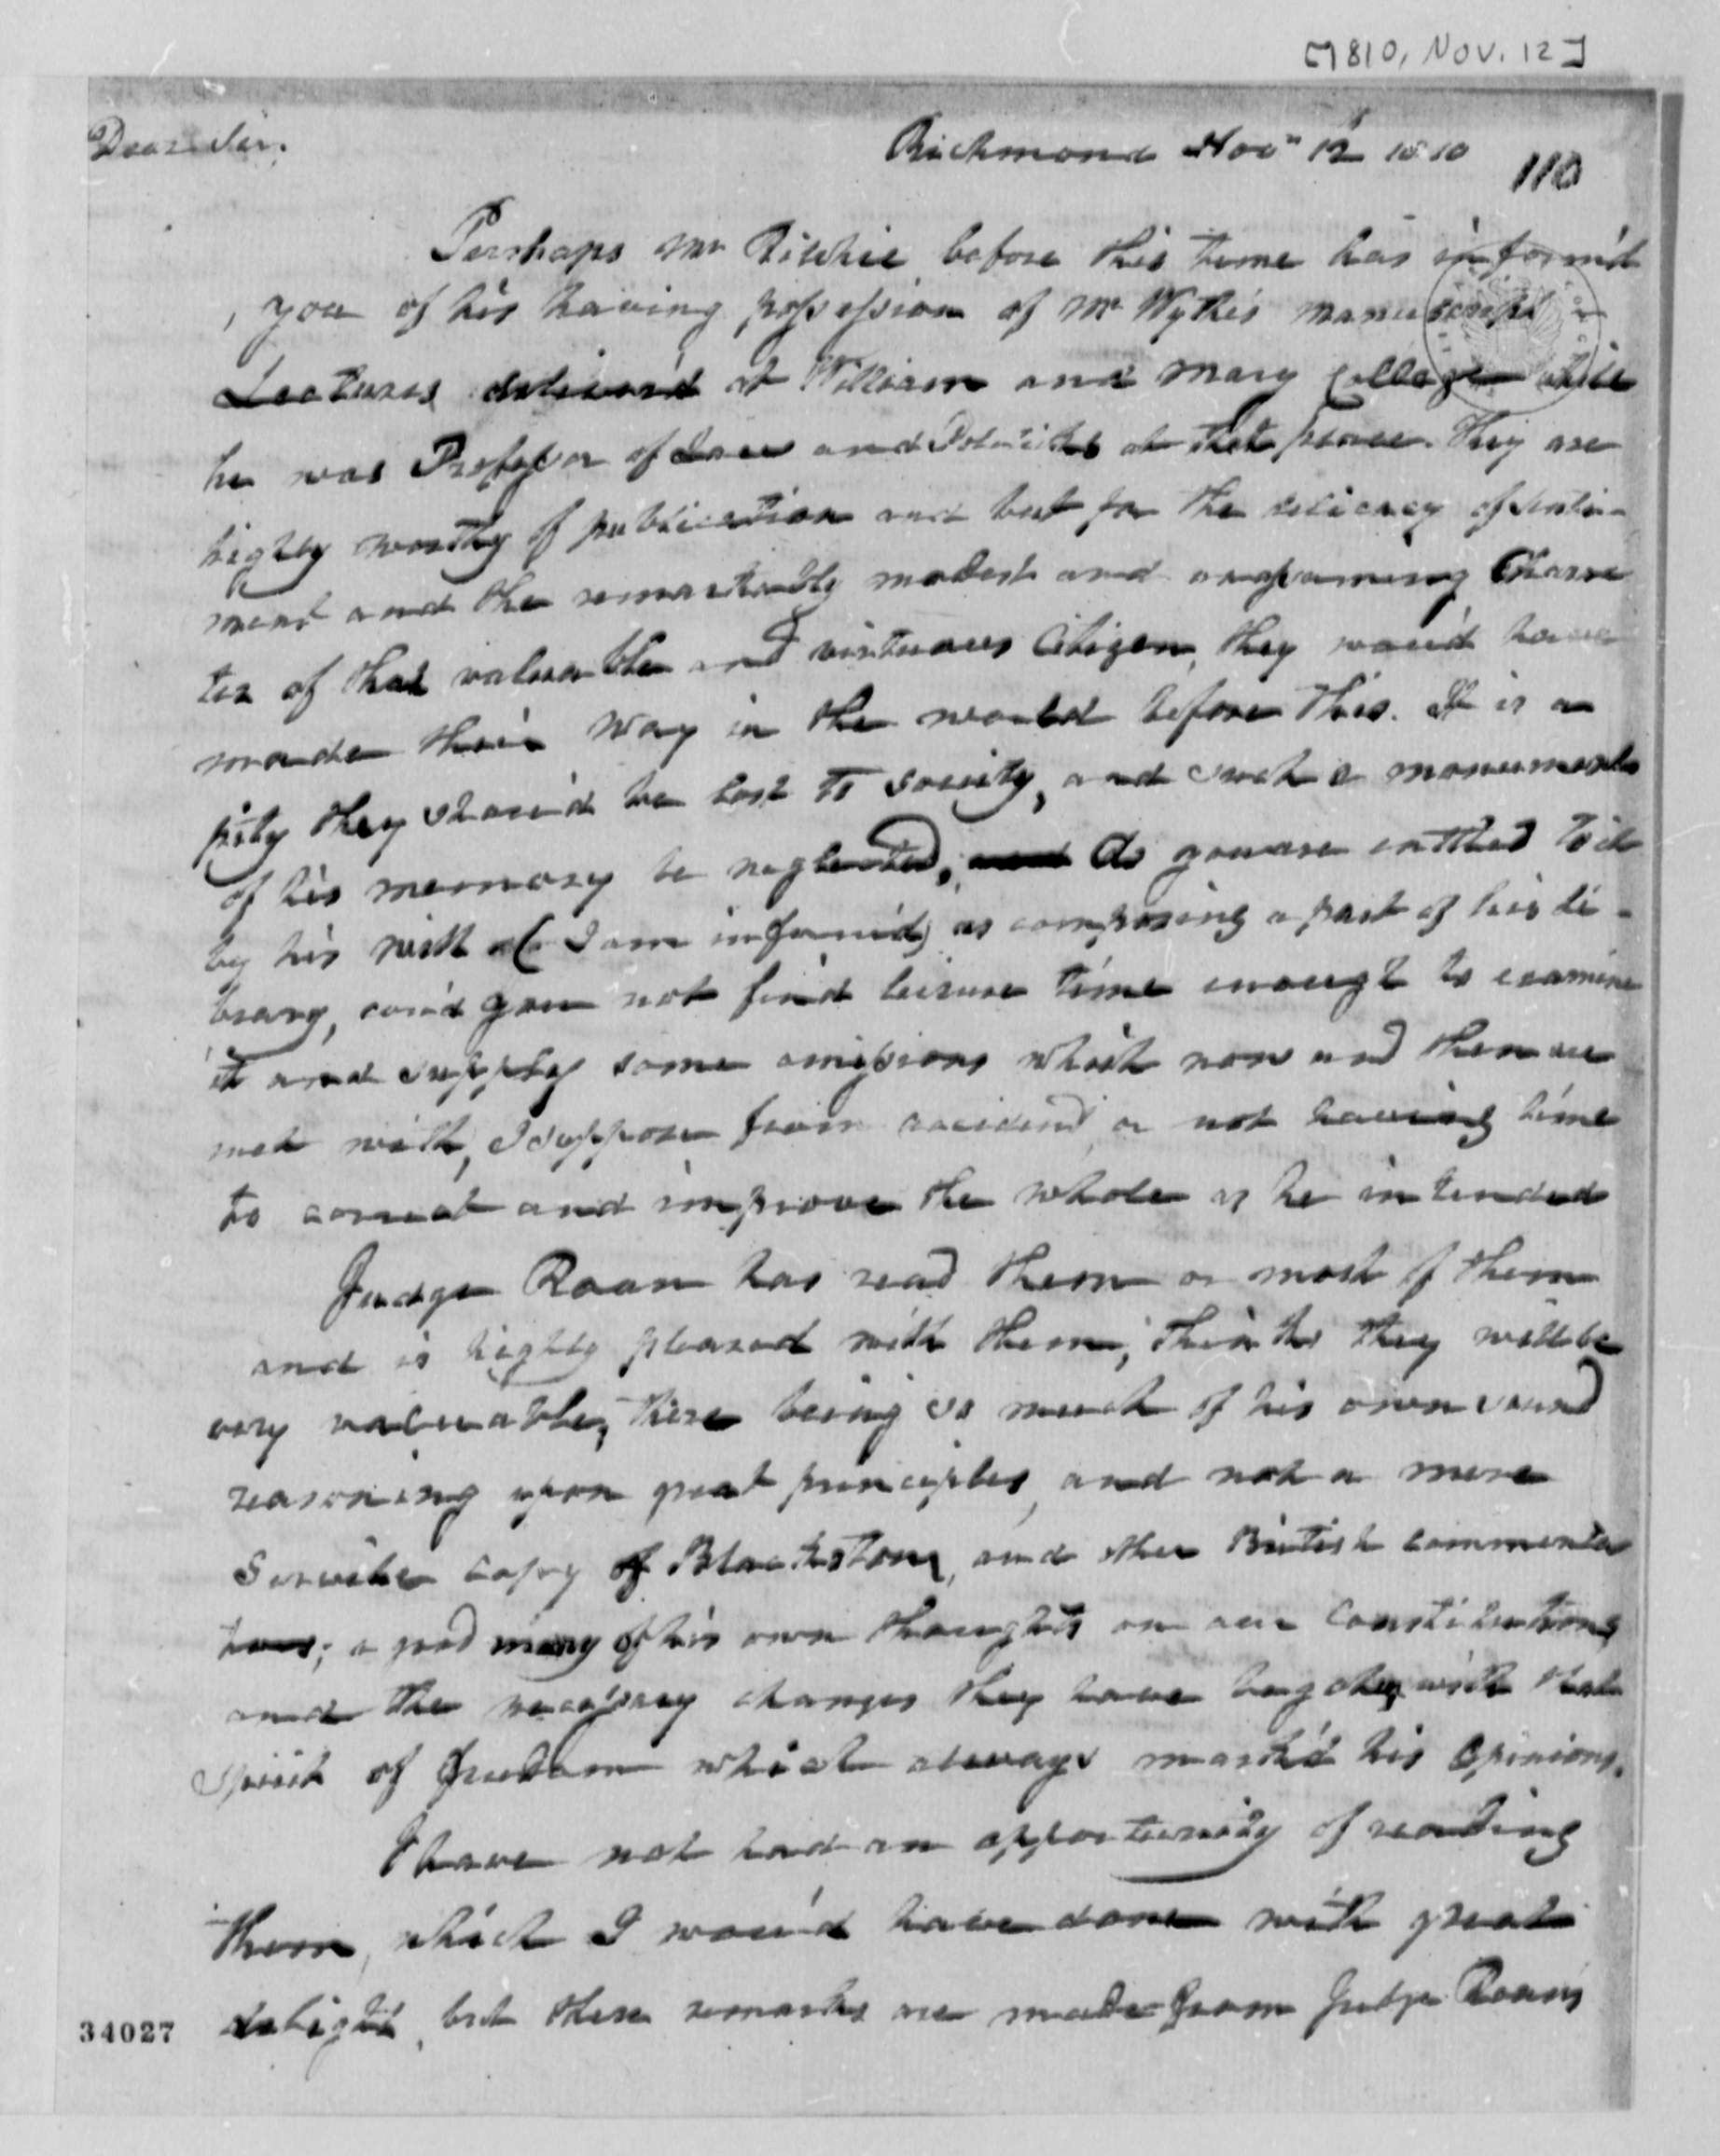 [1810, Nov. 12]
Dear Sir.
Richmond Novr 12 1810
110
Perhaps Mr Ritchie before this time has inform'd
you of his having possession of Mr Wythe's manuscript
Lectures deliver'd at William and Mary College while
he was Professor of Law and Politicks at that place. They are
highly worthy of publication and but for the delicacy of senti-
ment and the remarkably modest and unassuming Charac
ter of that valuable and virtuous Citizen, they wou'd have
made their Way in the world before this. It is a
pity they shou'd be lost to society, and such a monument
of his memory be neglected, As you are entitled to it
by his will (I am inform'd) as composing a part of his li-
brary, cou'd you not find leisure time enough to examine
it and supply some omissions which now and then are
met with, I suppose from accident or not having time
to correct and improve the whole as he intended
Judge Roan has read them or most of them
and is highly pleased with them, thinks they will be
very valuable, there being so much of his own sound
reasoning upon great principles, and not a mere
servile copy of Blackstone, and other British commenta
tors; a good many of his own thoughts on our Constitutions
and the necessary changes they have begotten with that
spirit of freedom which always mark'd his Opinions.
I have not had an opportunity of reading
them, which I wou'd have done with great
delight, but these remarks are made from Judge Roan's
34027